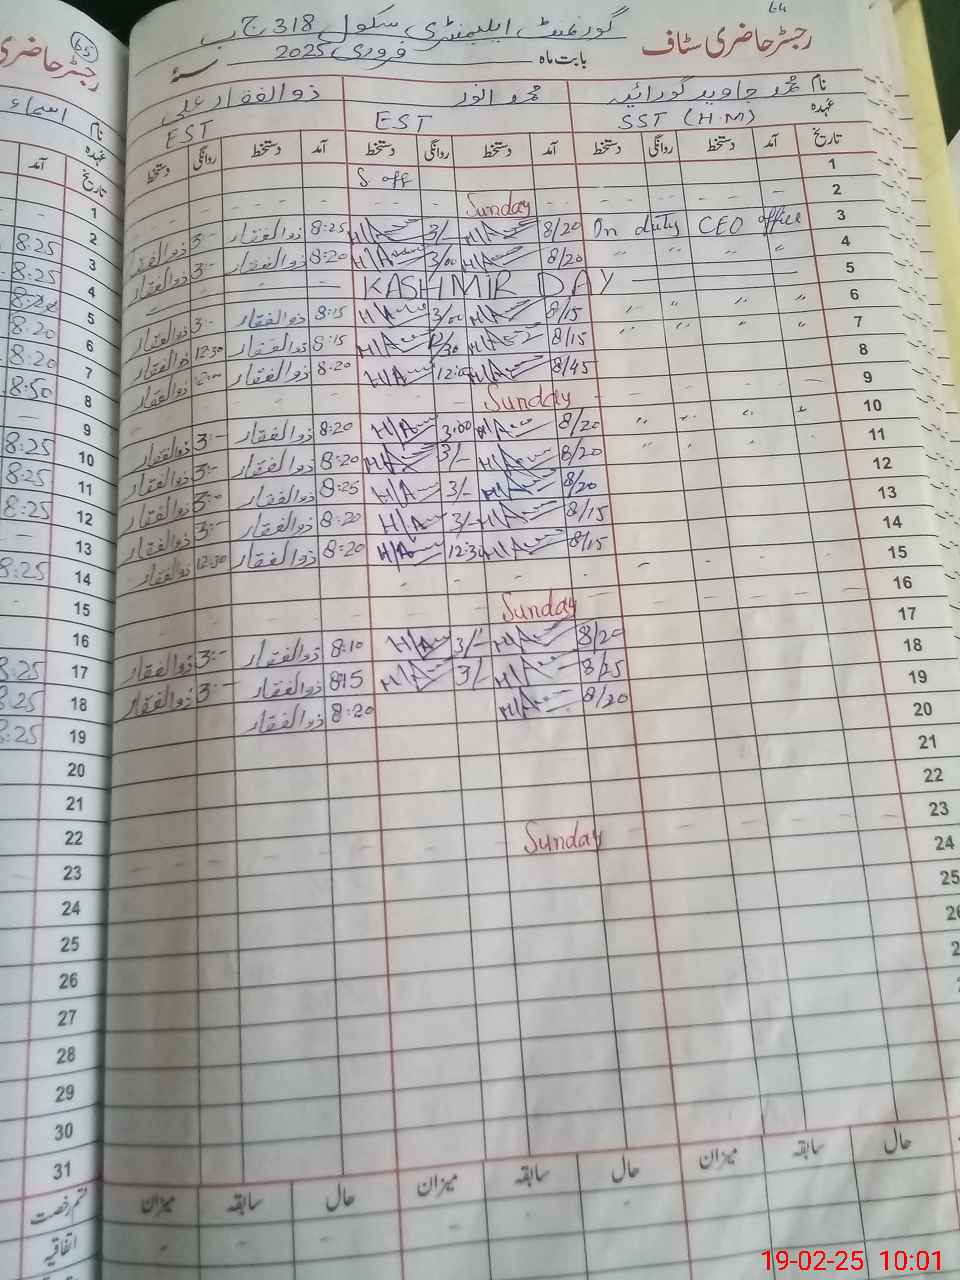 64
گورنمنٹ ایلیمنٹری سکول 318 ج ب
رجسٹر حاضری سٹاف
بابت ماہ فروری 2025 سنہ
نام محمد جاوید گورائیہ محمد انور ذوالفقار علی
عہدہ SST (H.M) EST EST
تاریخ آمد دستخط روانگی دستخط آمد دستخط روانگی دستخط آمد دستخط روانگی دستخط
1 S off
2 Sunday
3 On duty CEO office 8/20 3/ 8:25 ذوالفقار 3:- ذوالفقار
4 " " " " 8/20 3/00 8:20 ذوالفقار 3:- ذوالفقار
5 KASHMIR DAY
6 " " " " 8/15 3/00 8:15 ذوالفقار 3:- ذوالفقار
7 " " " " 8/15 12/30 8:15 ذوالفقار 12:30 ذوالفقار
8 8/45 12:00 8:20 ذوالفقار 12:00 ذوالفقار
9 Sunday
10 " " " " 8/20 3:00 8:20 ذوالفقار 3:- ذوالفقار
11 8/20 3/- 8:20 ذوالفقار 3:- ذوالفقار
12 8/20 3/- 8:25 ذوالفقار 3:- ذوالفقار
13 8/15 3/- 8:20 ذوالفقار 3:- ذوالفقار
14 8/15 12:30 8:20 ذوالفقار 12:30 ذوالفقار
15
16 Sunday
17 8/20 3/- 8:10 ذوالفقار 3:- ذوالفقار
18 8/25 3/ 8:15 ذوالفقار 3:- ذوالفقار
19 8/20 8:20 ذوالفقار
20
21
22
23 Sunday
24
25
حال سابقہ میزان حال سابقہ میزان حال سابقہ میزان
65
رجسٹر حاضری
نام اسماء
عہدہ
تاریخ آمد
1
2
3 8:25
4 8:25
5
6 8:20
7 8:20
8 8:50
9
10 8:25
11 8:25
12 8:25
13
14 8:25
15
16
17 8:25
18 8:25
19 8:25
20
21
22
23
24
25
26
27
28
29
30
31
قسم رخصت
اتفاقیہ
19-02-25 10:01